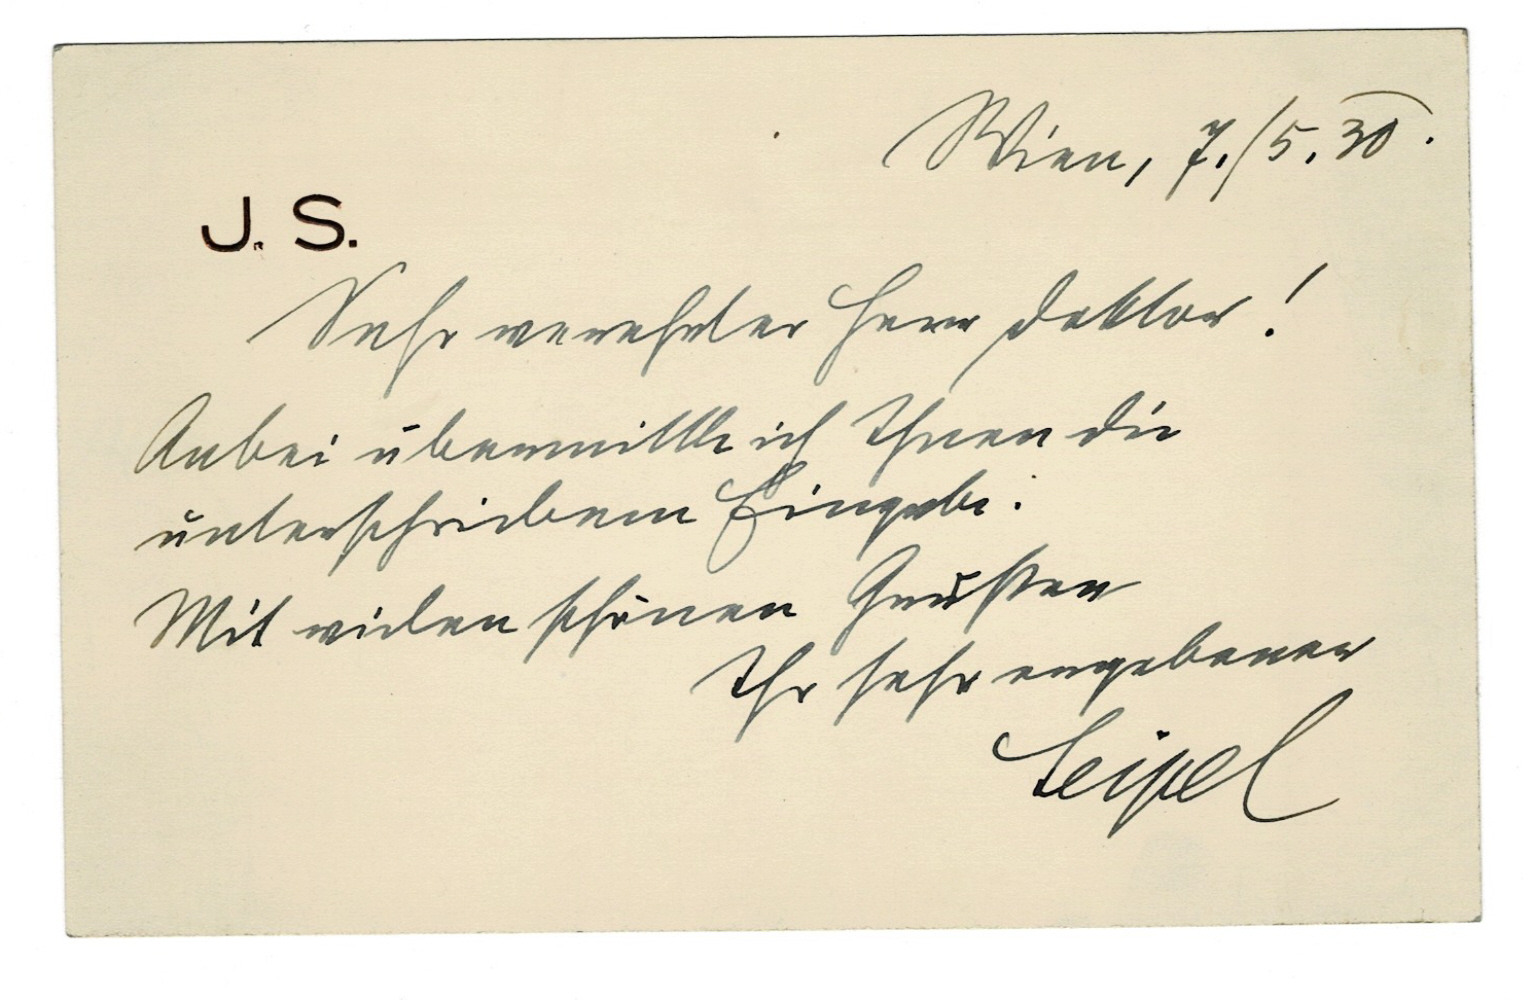 Wien, 7./5.30.
J. S.
Sehr verehrter Herr Doktor!
Anbei übermittle ich Ihnen die
unterschriebene Eingabe.
Mit vielen schönen Grüßen
Ihr sehr ergebener
Seipel